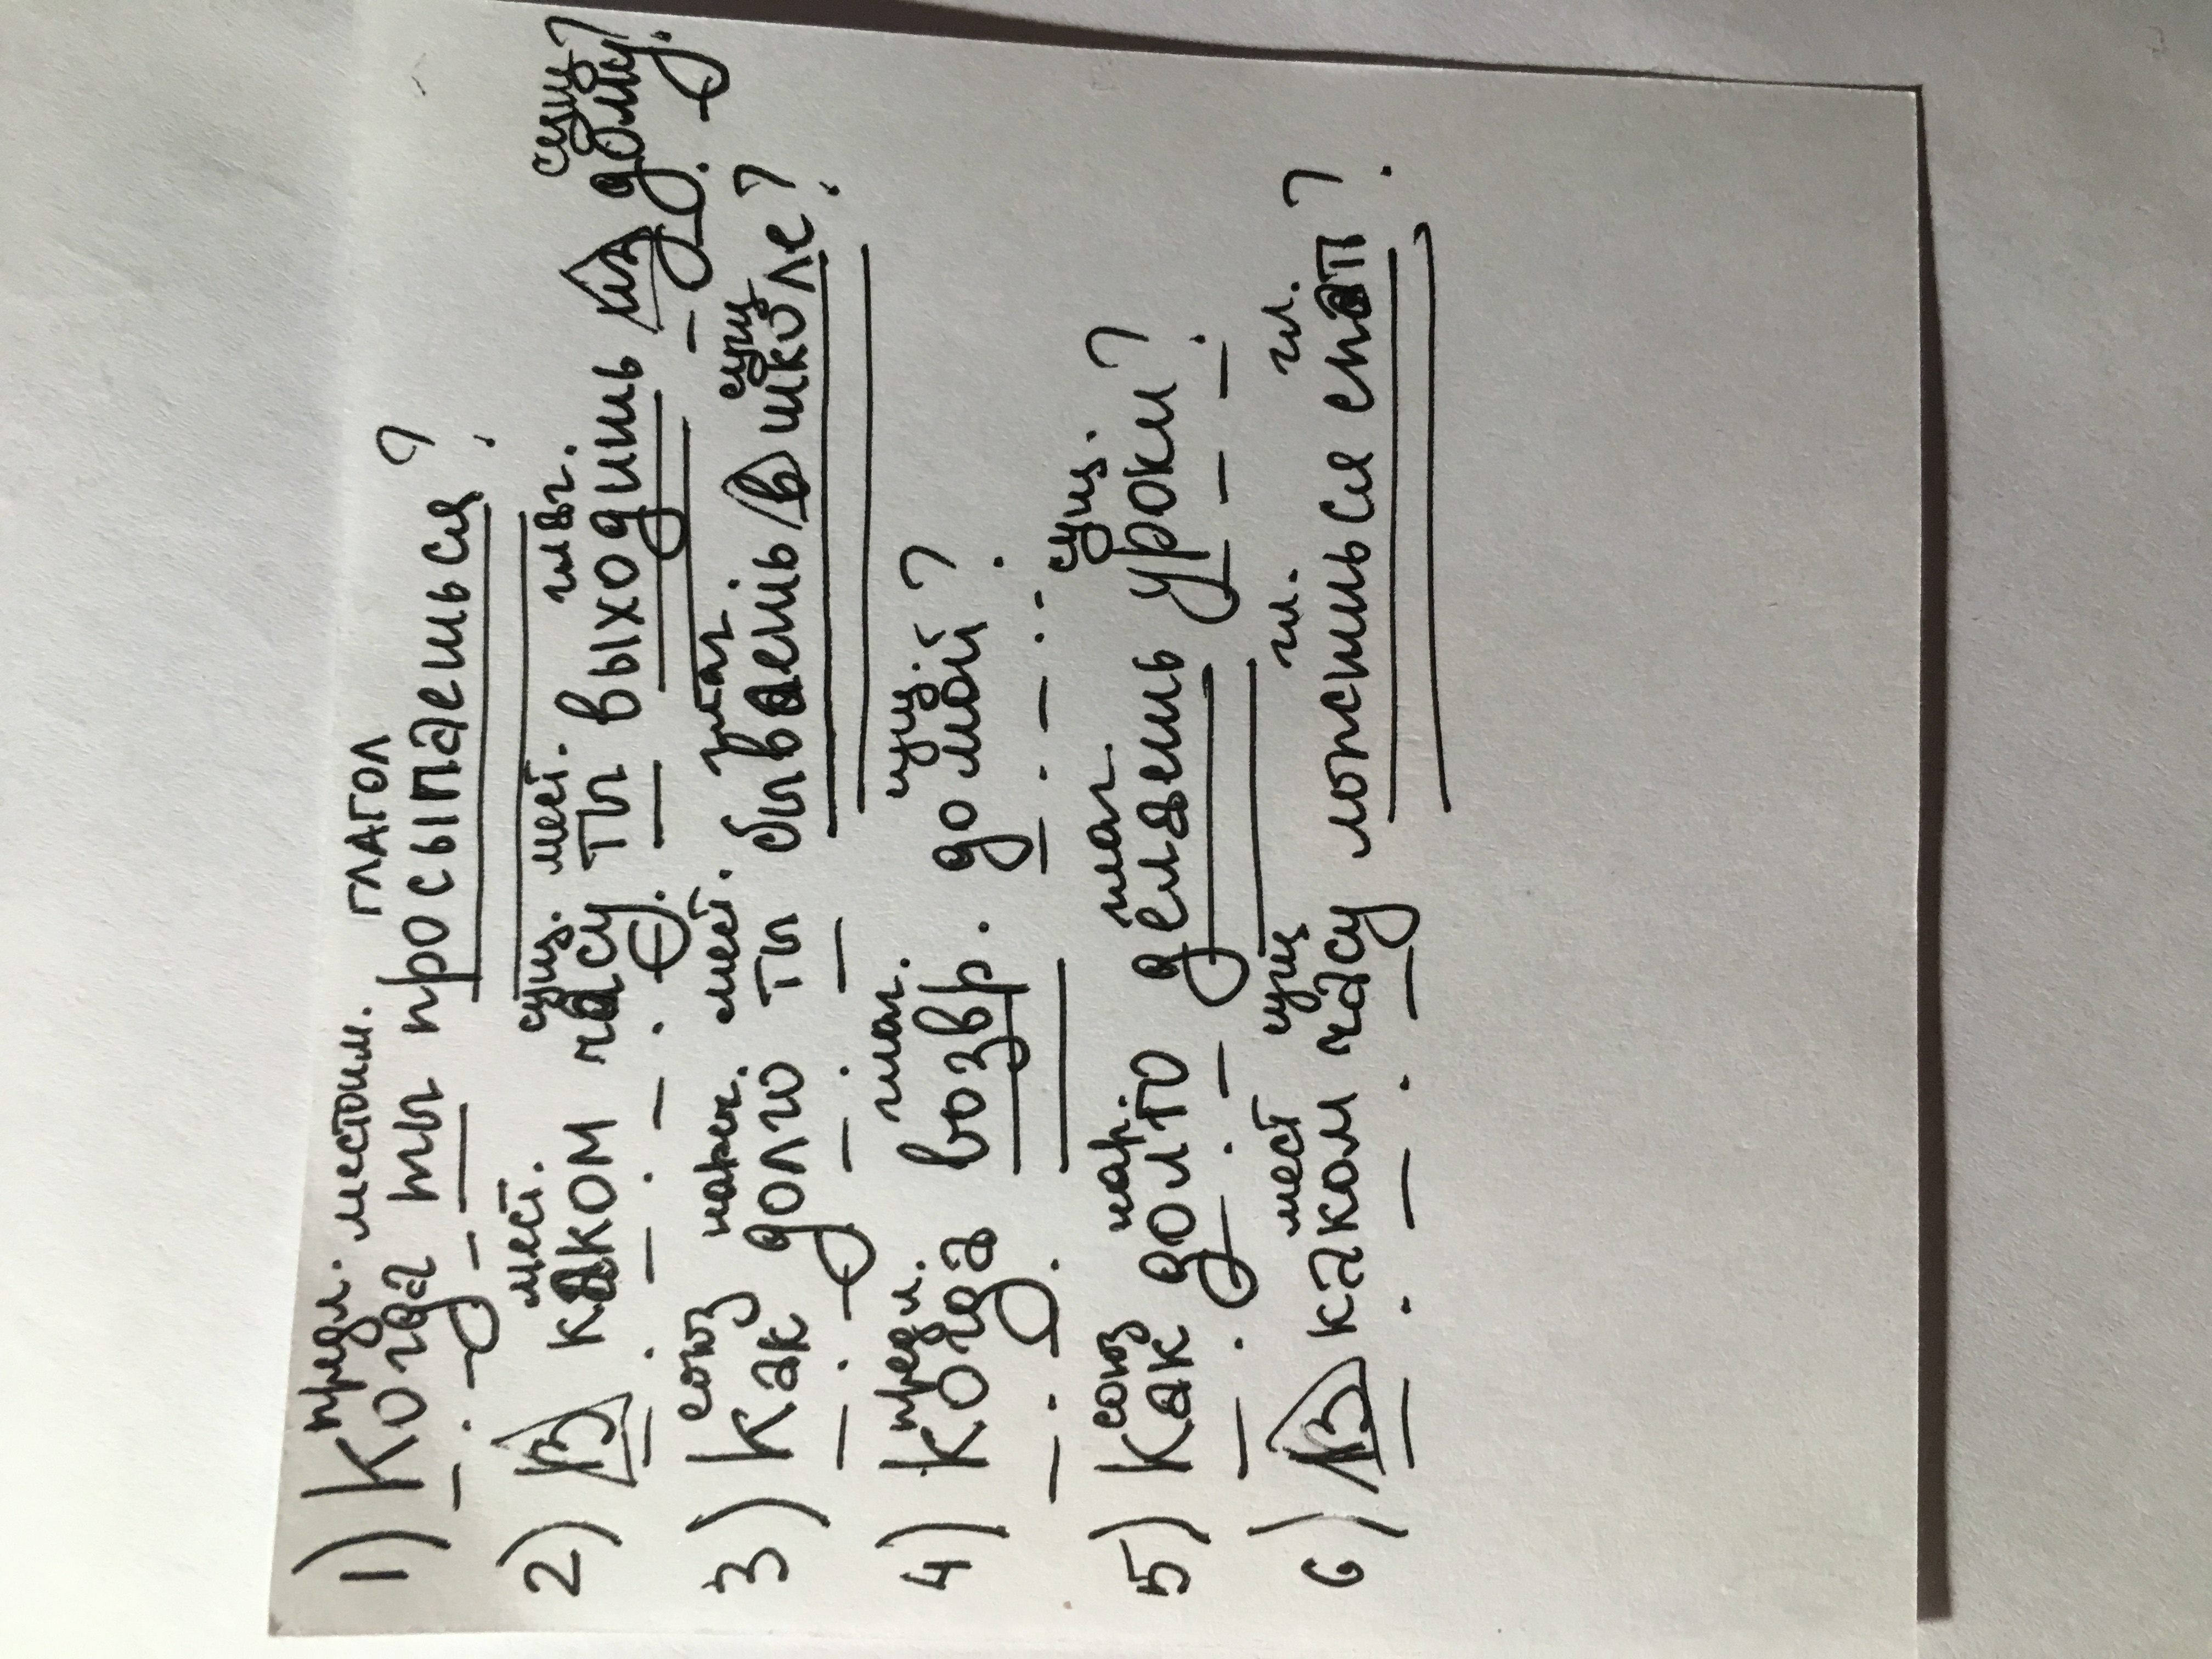 предл. местоим. ГЛАГОЛ
1) Когда ты просыпаешься?
мест. сущ. мест. глаг. сущ
2) В каком часу ты выходишь из дому?
союз нареч. мест. глаг сущ
3) Как долго ты бываешь в школе?
предл. глаг. сущ.
4) Когда возвр. домой?
союз нар. глаг сущ.
5) Как долго делаешь уроки?
мест сущ гл. гл.
6) В каком часу ложишься спат?